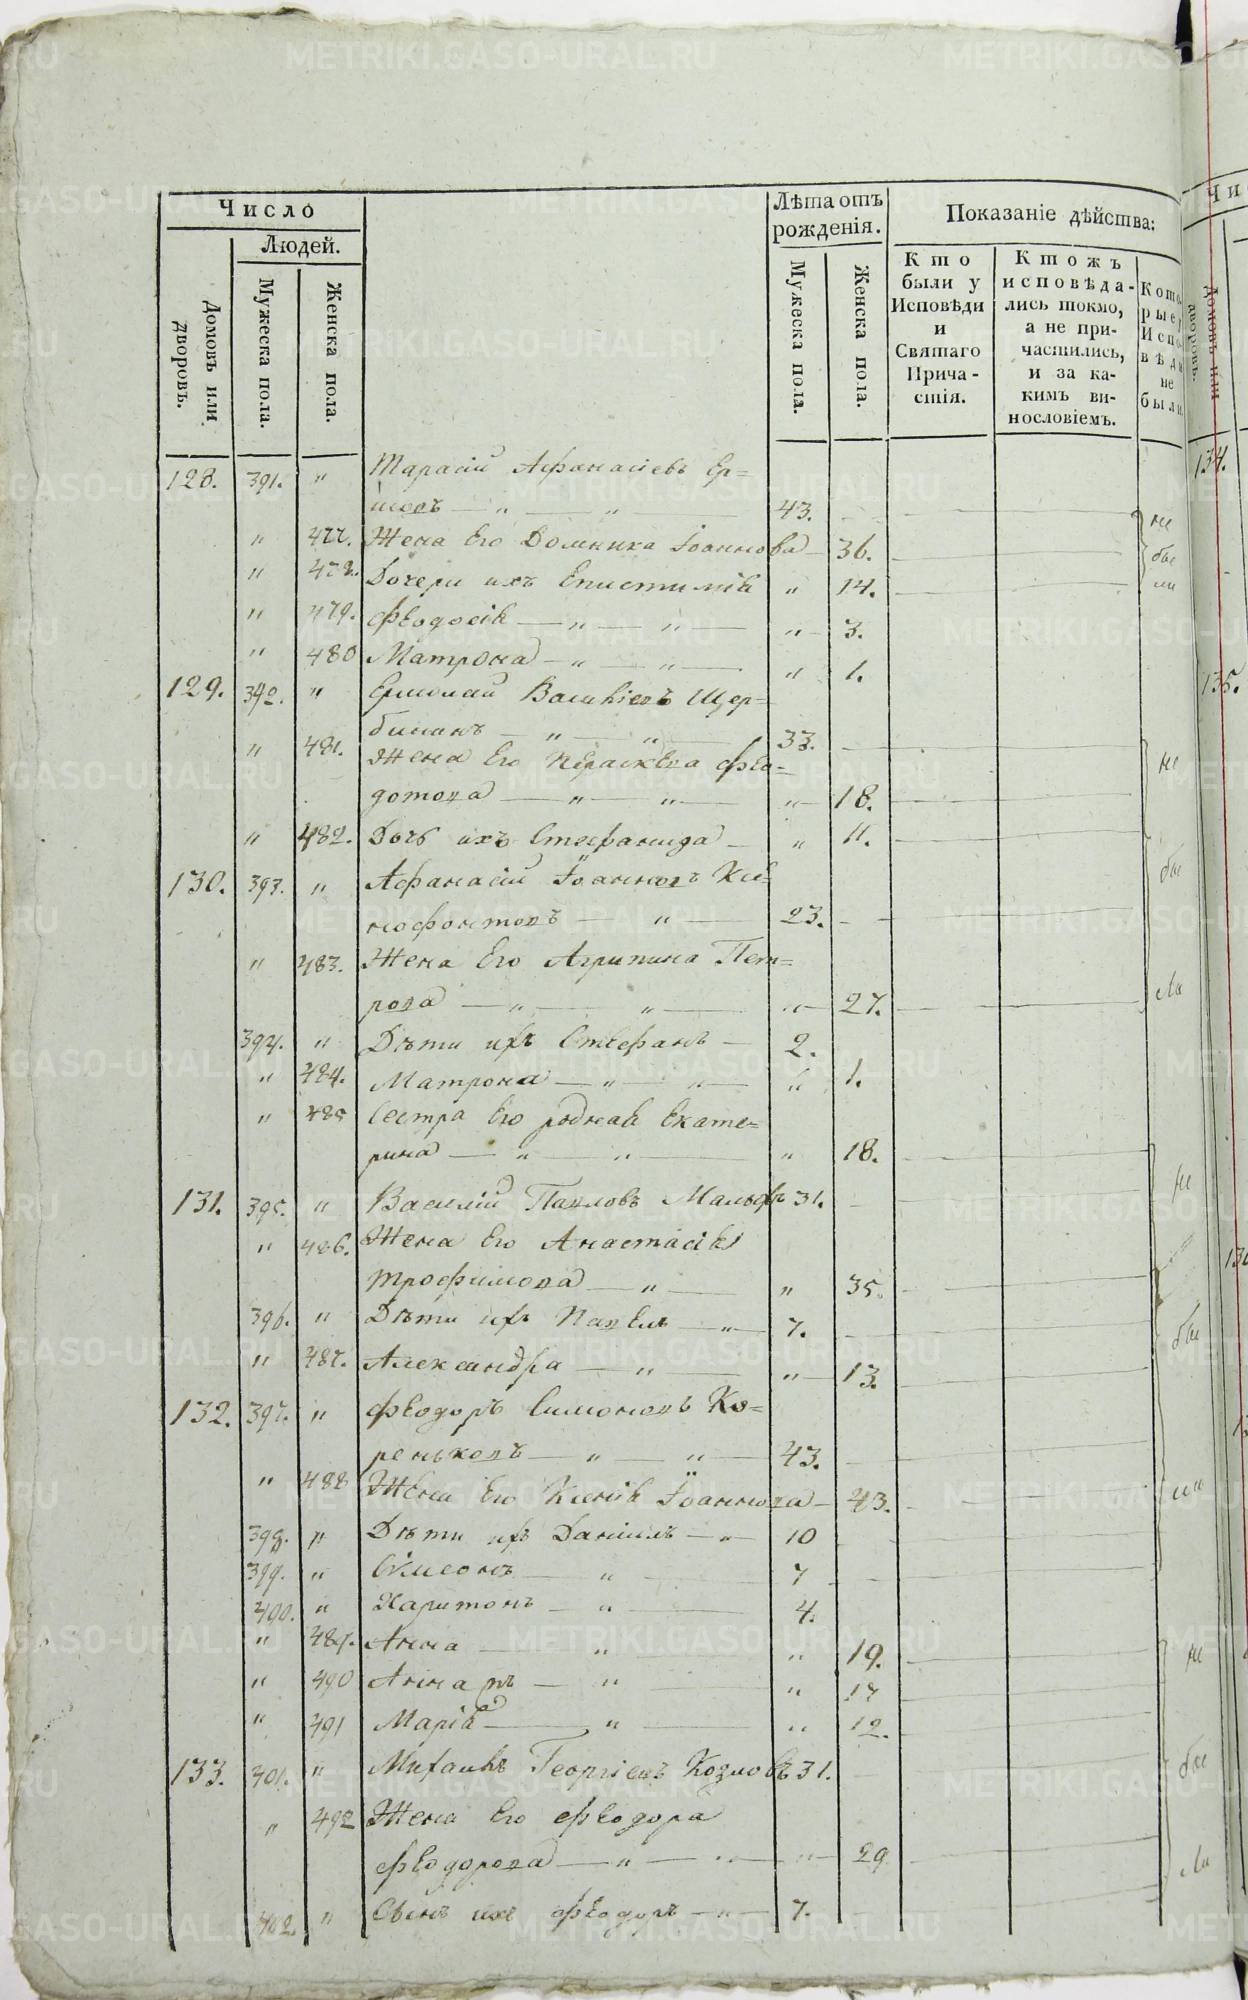 Число
Людей.
Домовъ или дворовъ.
Мужеска пола.
Женска пола.
Лѣта отъ рожденія.
Мужеска пола.
Женска пола.
Показаніе дѣйства:
Кто были у Исповѣди и Святаго Причастія.
Ктожъ исповѣдались токмо, а не причастились, и за какимъ винословіемъ.
Которые у Исповѣди не были
128. 391. " Тарасій Афанасіевъ Ер=
шовъ — " — " — 43.
" 477. Жена Его Домника Іоаннова 36.
" 478. Дочери ихъ Епистимія " 14.
" 479. Феодосія — " — " — " 3.
" 480 Матрона — " — " — " 1.
не
бы
ли
129. 392. " Ермолай Васильевъ Щер=
бининъ — " — " — 33.
" 481. Жена Его Параскева Фео=
дотова — " — " — " 18.
" 482. Дочь ихъ Стефанида — " 11.
130. 393. " Афанасій Іоанновъ Ксе=
нофонтовъ — " — 23.
" 483. Жена Его Агрипина Пет=
рова — " — " — " 27.
394. " Дѣти ихъ Стефанъ — 2.
" 484. Матрона — " — " — " 1.
" 485 Сестра Его родная Екате=
рина — " — " — " 18.
не
бы
ли
131. 395. " Василій Павловъ 31.
" 486. Жена Его Анастасія
Трофимова — " — " 35.
396. " Дѣти ихъ Павелъ — " — 7.
" 487. Александра — " — " 13.
132. 397. " Феодоръ Симоновъ Ко=
реньковъ — " — " — 43.
" 488 Жена Его Ксенія Іоаннова — 43.
398. " Дѣти ихъ Даніилъ — " 10
399. " Симеонъ — " — 7
400. " Харитонъ — " — 4.
" 489. Анна — " — " 19.
" 490 Анна — " — " 17
" 491 Марія — " — " 12.
не
бы
ли
133. 401. " Михаилъ Георгіевъ Козловъ 31.
" 492 Жена Его Феодора
Феодорова — " — " — " 29
402 " Сынъ ихъ Феодоръ — " — 7.
не
бы
ли
134.
135.